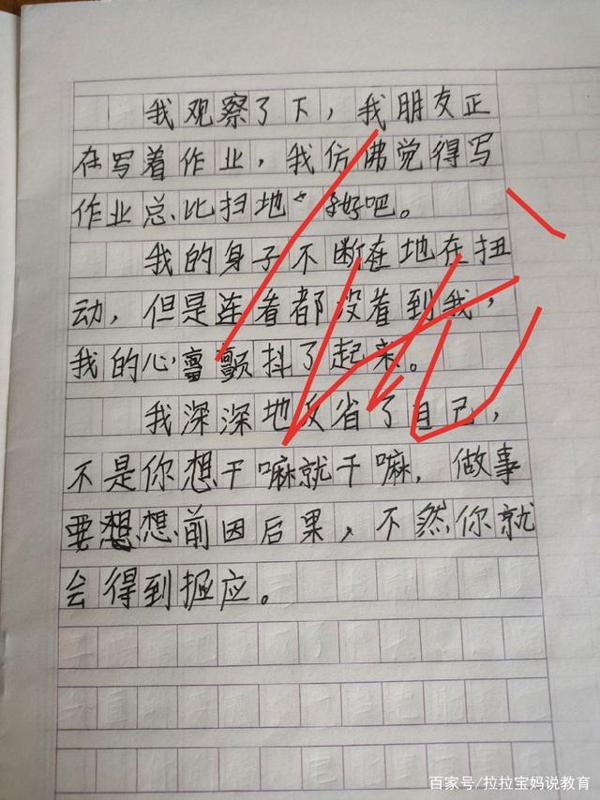 我观察了下，我朋友正
在写着作业，我仿佛觉得写
作业总比扫地好吧。
我的身子不断在地在扭
动，但是连看都没看到我，
我的心颤抖了起来。
我深深地反省了自己，
不是你想干嘛就干嘛，做事
要想想前因后果，不然你就
会得到报应。
百家号/拉拉宝妈说教育